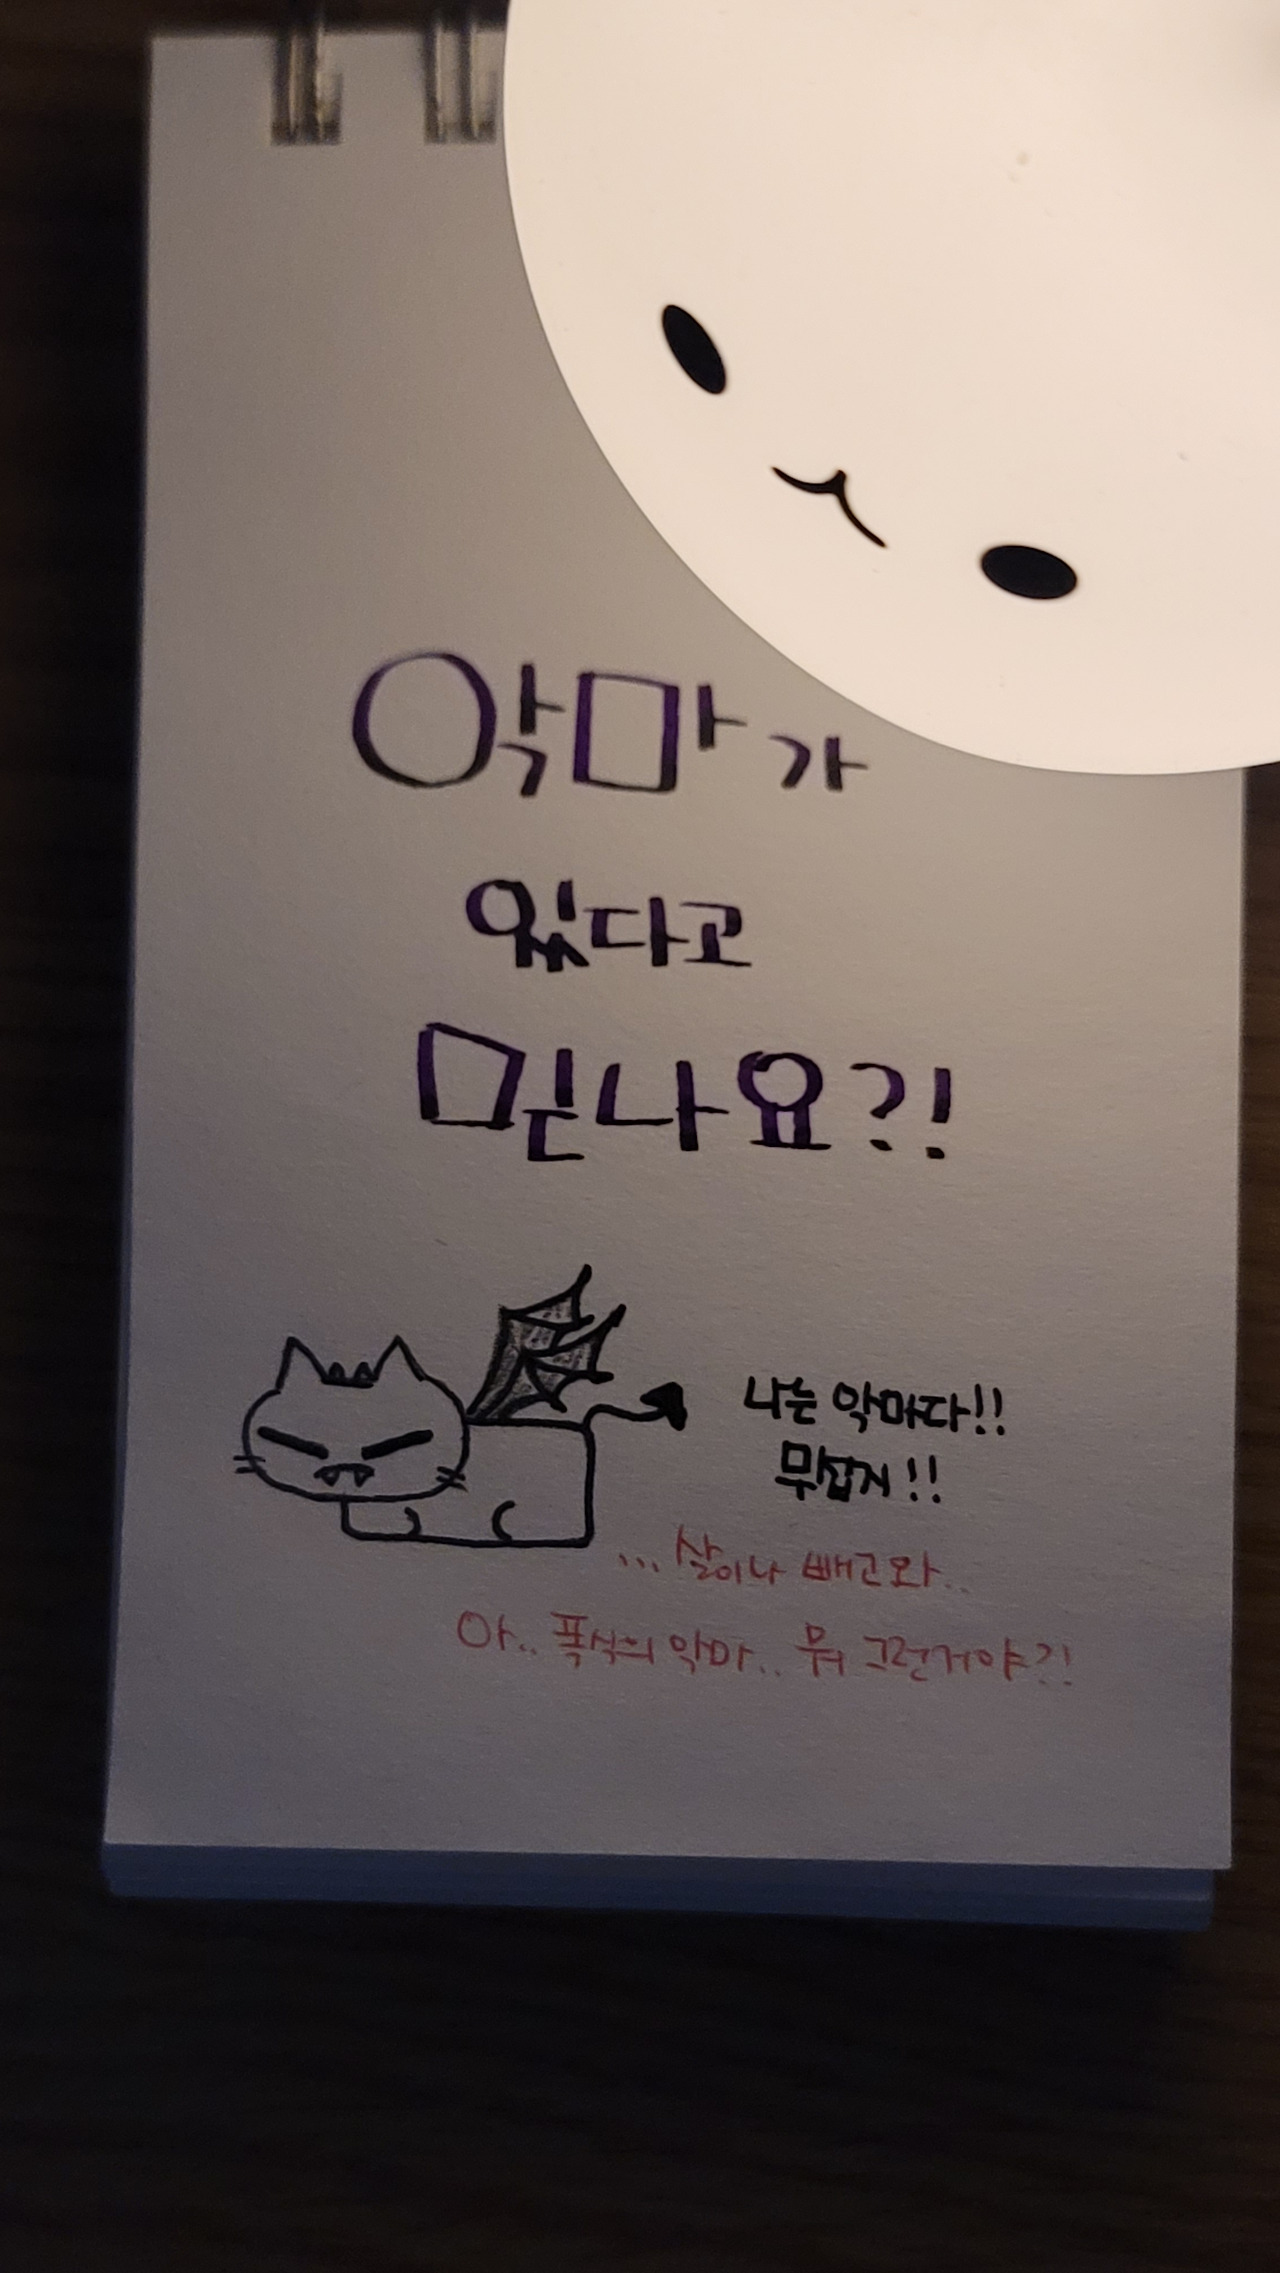 악마가
있다고
믿나요?!
나는 악마다!!
무섭지!!
...살이나 빼고와..
아.. 폭식의 악마.. 뭐 그런거야?!